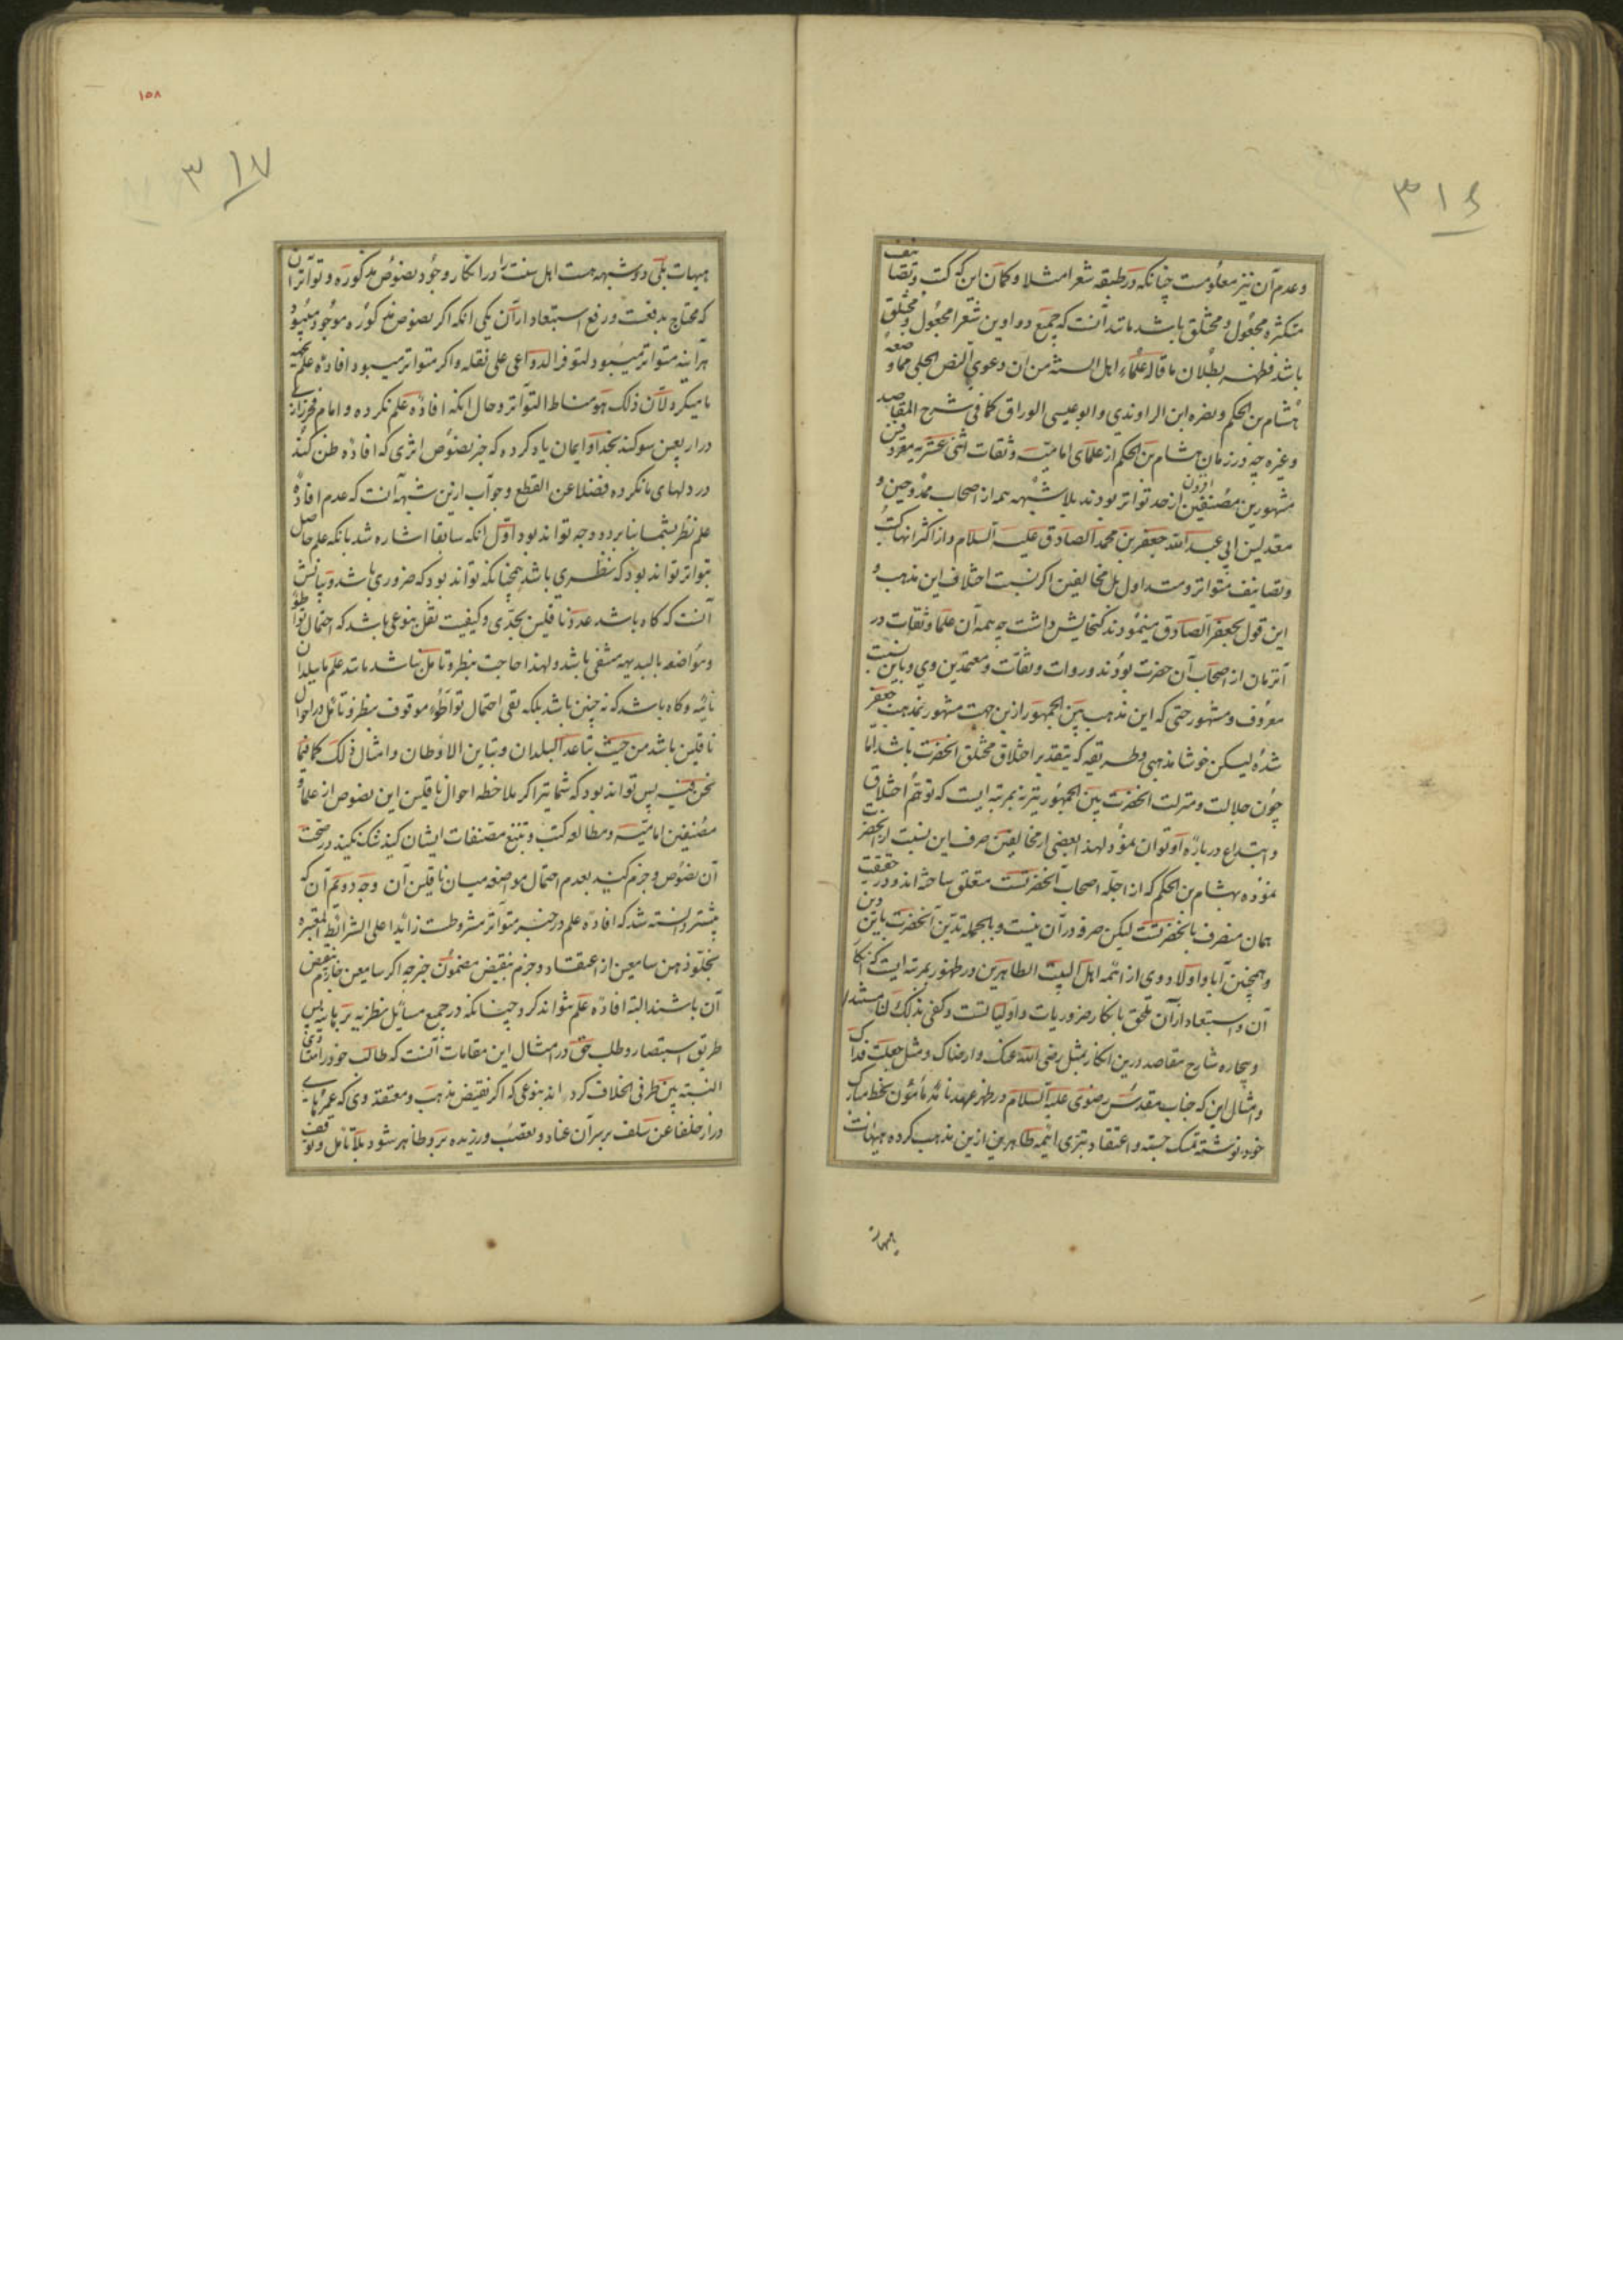 ٣١٤
وعدم آن نیز معلومست چنانکه در طبقه شعرا مثلا و کمان این که کتب و تصانیف
متکثره مجعول و مختلق باشد مانند آنست که جمیع دواوین شعرا مجعول و مختلق
باشد فظهر بطلان ما قاله علماء اهل السنة من ان دعوی النص الجلی مما وضعه
هشام بن الحکم و نصره ابن الراوندی و ابو عیسی الوراق کما فی شرح المقاصد
وغیره چه در زمان هشام بن الحکم از علمای امامیه و ثقات اثنی عشریه معروفین
مشهورین مصنفین افزون از حد تواتر بودند بلا شبهه همه از اصحاب ممدوحین و
معدلین ابی عبد الله جعفر بن محمد الصادق علیه السلام و از اکثر انها کتب
وتصانیف متواتر و متداول بل مخالفین اگر نسبت اختلاف این مذهب و
این قول بجعفر الصادق مینمودند کنجایش داشت چه همه آن علما و ثقات در
آنزمان از اصحاب آن حضرت بودند و روات و ثقات و معتمدین وی و باین نسبت
معروف و مشهور حتی که این مذهب بین الجمهور ازین جهت مشهور بمذهب جعفر
شده لیسکن خوشا مذهبی و طریقه که بتقدیر اختلاق مختلق انحضرت باشد اما
چون جلالت و منزلت انحضرت بین الجمهور نیز بمرتبه ایست که توهم اختلاق
و ابتداع در باره او نتوان نمود لهذا بعضی از مخالفین صرف این نسبت از انحضرت
نموده بهشام بن الحکم که از اجله اصحاب آنحضرتست متعلق ساخته اند و در حقیقت
همان منصرف بانحضرتست لیکن صرفه در آن نیست و بالجمله تدین آنحضرت باین دین
و همچنین آبا و اولاد وی از ائمه اهل البیت الطاهرین در ظهور بمرتبه ایست که انکار
آن و استبعاد از آن ملحق بانکار ضروریات و اولیاتست و کفی بذلک
و بیچاره شارح مقاصد درین انکار بمثل رضی الله عنک و ارضاک و مثل جعلت فداک
و امثال این که جناب مقدس رضوی علیه السلام در ظهر عهدنامه مامون بخط مبارک
خود نوشته تمسک جسته و اعتقاد تبری ائمه طاهرین ازین مذهب کرده هیهات
هیهات
١٥٨
٣١٧
هیهات بلی دو شبهه هست اهل سنت را در انکار وجود نصوص مذکوره و تواتر آن
که محتاج بدفعست و رفع استبعاد از آن یکی انکه اگر نصوص مذکوره موجود میبود
هر آینه متواتر میبود لتوفر الدواعی علی نقله و اگر متواتر میبود افاده علم بهمه
ما میکرد لان ذلک هو مناط التواتر و حال انکه افاده علم نکرده و امام فخر رازی
در اربعین سوکند بخدا و ایمان یاد کرده که جز نصوص اثری که افاده ظن کند
در دلهای ما نکرده فضلا عن القطع و جواب ازین شبهه آنست که عدم افاده
علم نظر بشما بنا بر دو وجه تواند بود اول انکه سابقا اشاره شد بانکه علم حاصل
بتواتر تواند بود که نظری باشد همچنانکه تواند بود که ضروری باشد و بیانش
آنست که کاه باشد عدد ناقلین بحدی و کیفیت نقل بنوعی باشد که احتمال تواطؤ
و مواضعه بالبدیهه منتفی باشد و لهذا حاجت بنظر و تامل نباشد مانند علم ببلدان
نائیه و کاه باشد که نه چنین باشد بلکه نفی احتمال تواطؤ موقوف بنظر و تامل در احوال
ناقلین باشد من حیث تباعد البلدان و تباین الاوطان و امثال ذلک کما فیما
نحن فیه پس تواند بود که شما نیز اکر ملاحظه احوال ناقلین این نصوص از علما و
مصنفین امامیه و مطالعه کتب و تتبع مصنفات ایشان کنید شک نکنید در صحت
آن نصوص و جزم کنید بعدم احتمال مواضعه میان ناقلین آن وجه دویم آن که
پیشتر دانسته شد که افاده علم در خبر متواتر مشروطست زائدا علی الشرائط المعتبره
بخلو ذهن سامعین از اعتقاد و جزم بنقیض مضمون خبر چه اگر سامعین جازم بنقیض
آن باشند البته افاده علم نتواند کرد چنانکه در جمیع مسائل نظریه برهانیه پس
طریق استبصار و طلب حق در امثال این مقامات آنست که طالب خود را متساوی
النسبه بین طرفی الخلاف کرداند بنوعی که اگر نقیض مذهب و معتقد وی که عمرهای
دراز خلفا عن سلف بر سر آن عناد و تعصب ورزیده برو ظاهر شود بلا تامل و توقف